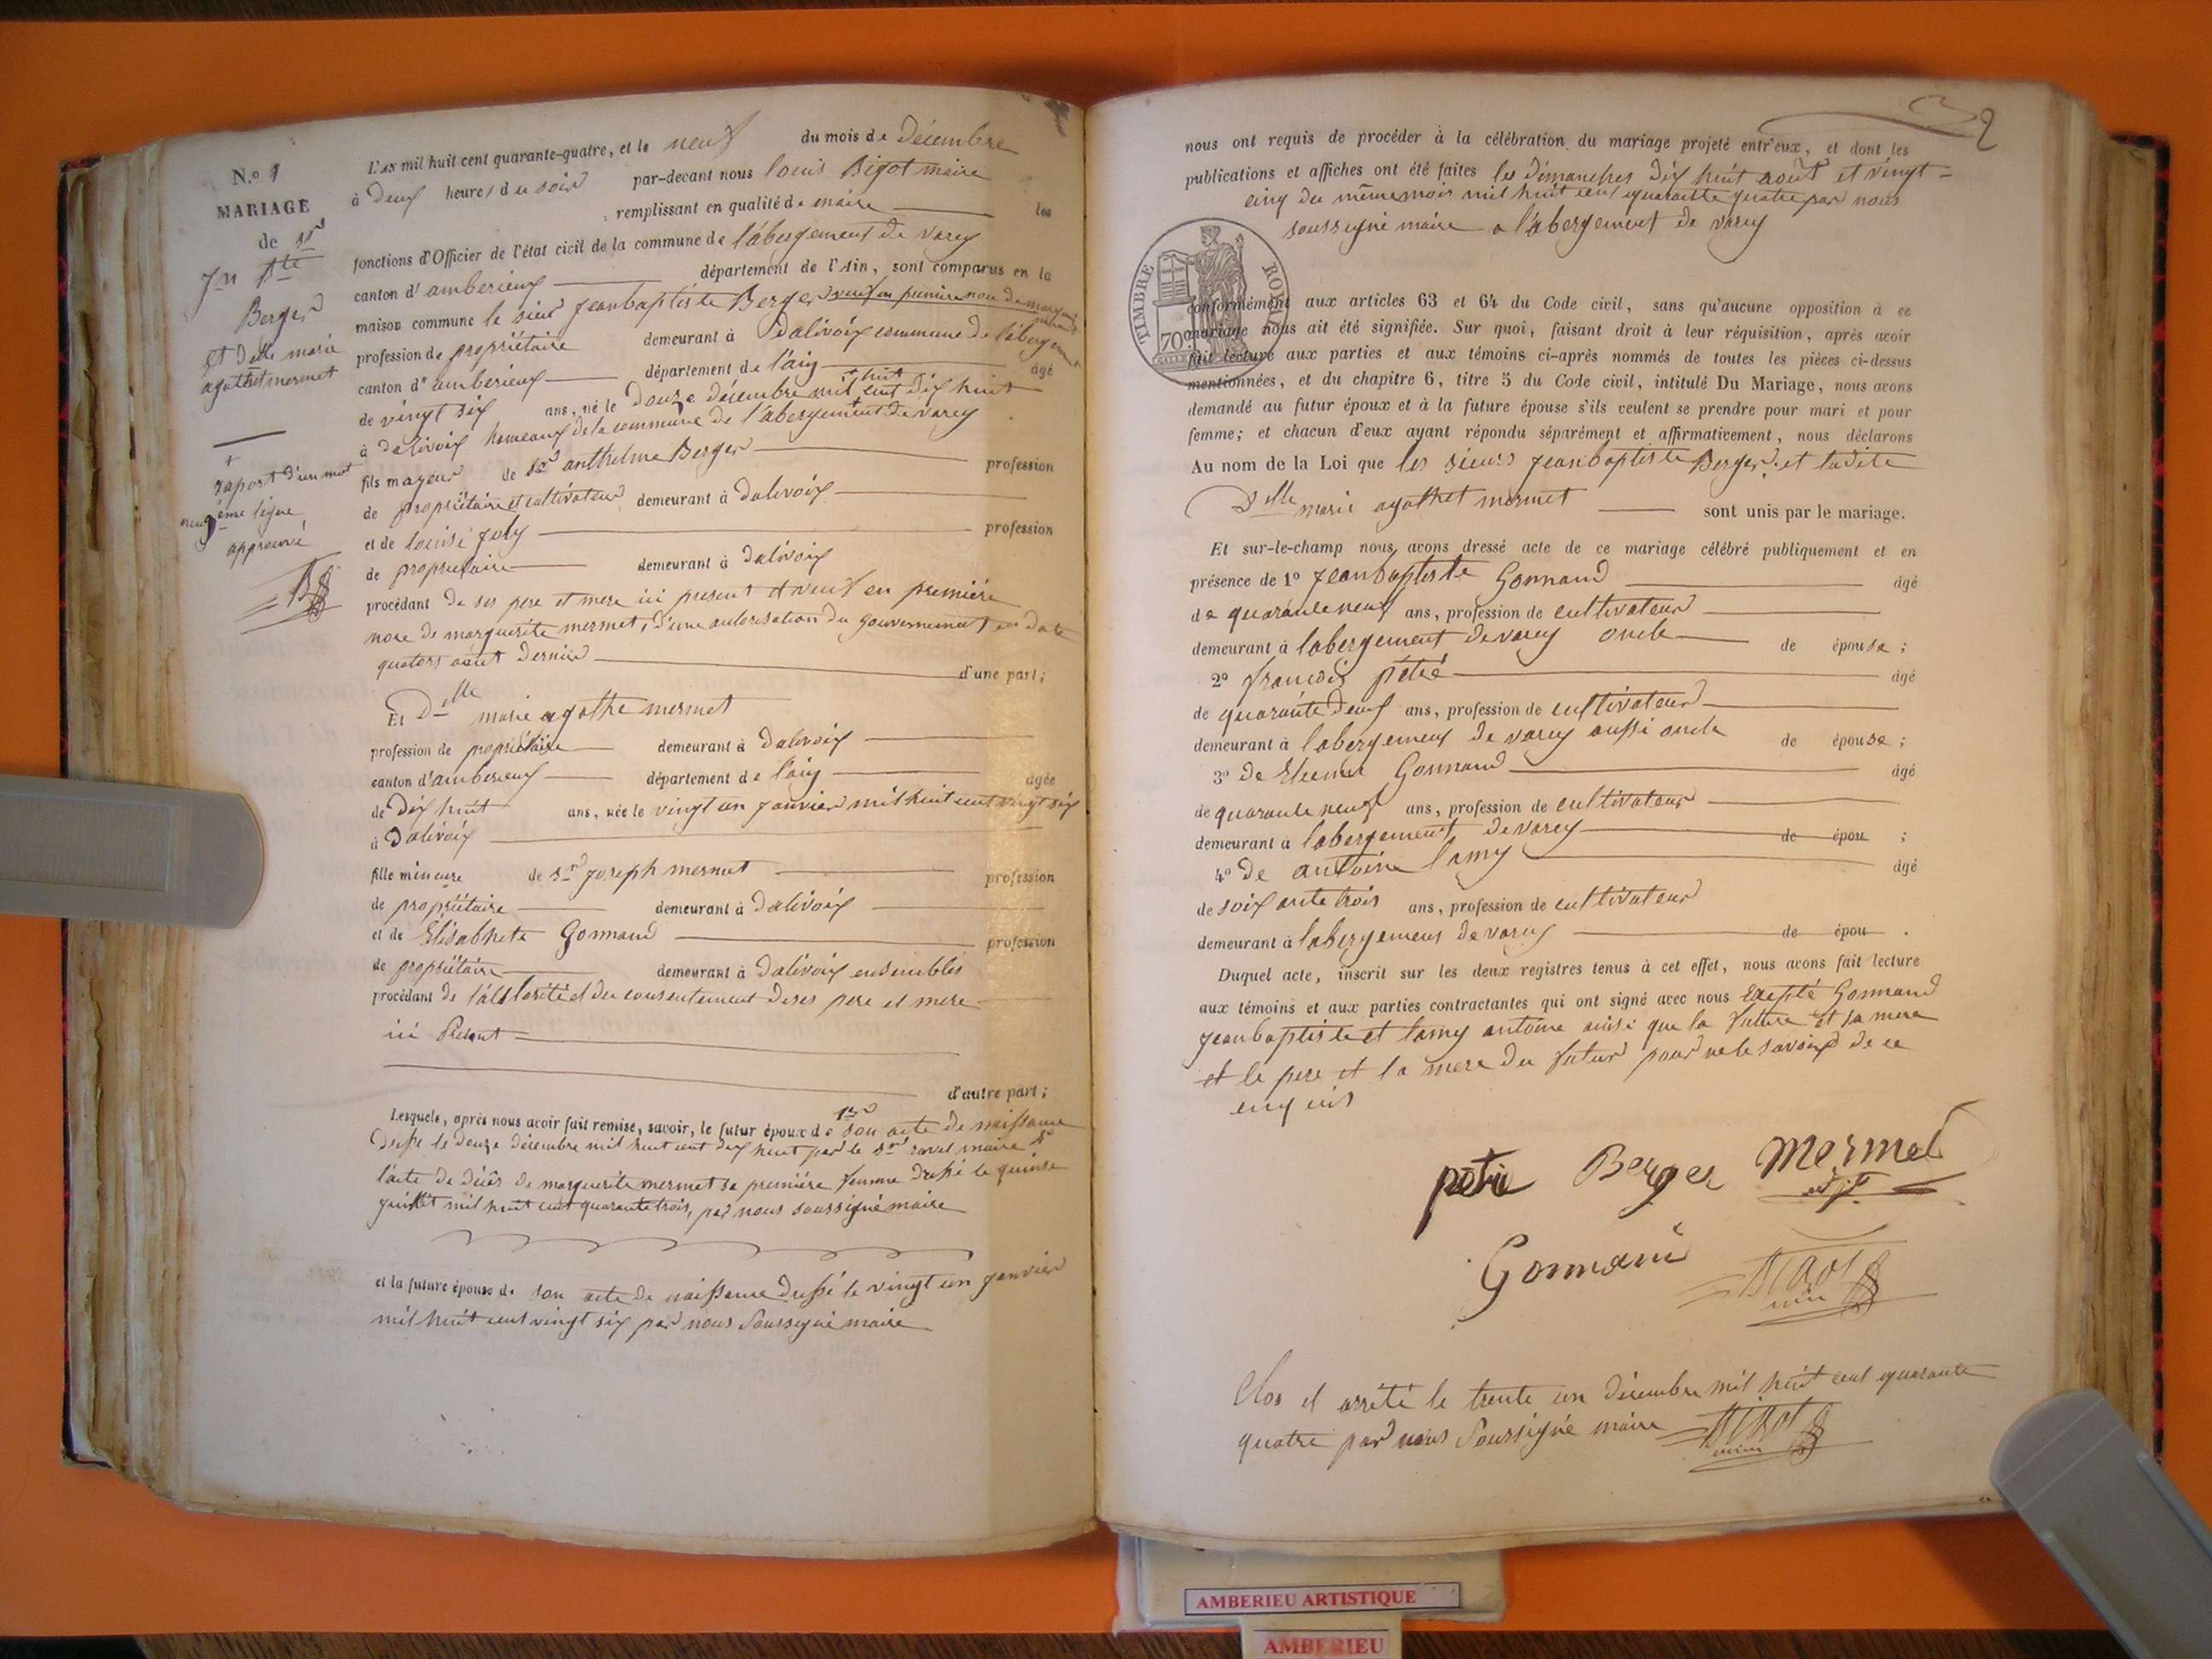 N.º 1
MARIAGE
de Sr
Jn Bte
Berger
et Delle marie
agathe mermet
+
raport d'un mot
neuvième ligne
approuvé
L'an mil huit cent quarante-quatre, et le neuf du mois de Décembre
à Deux heures du soir par-devant nous louis Bigot maire
remplissant en qualité de maire les
fonctions d'Officier de l'état civil de la commune de l'abergement de varey
canton d'amberieux département de l'Ain, sont comparus en la
maison commune le sieur Jeanbaptiste Berger veuf en premiere noce de
profession de propriétaire demeurant à Dalivoix commune de l'abergement
canton d'amberieux département de l'aig âgé
+ huit
de vingt six ans, né le Douze décembre mil + cent dix huit
à dalivoix hameaux de la commune de l'abergement de varey
fils mayeur de sr anthelme Berger profession
de propriétaire et cultivateur demeurant à Dalivoix
et de louise joly profession
de proprietaire demeurant à Dalivoix
procédant de ses pere et mere ici present et veuf en premiére
nose de marguerite mermet, d'une autorisation du gouvernement en date
quators août dernier d'une part;
Et Delle marie agathe mermet
profession de propriétaire demeurant à Dalivoix
canton d'amberieux département de l'aig âgée
de Dix huit ans, née le vingt un janvier mil huit cent vingt six
à Dalivoix
fille mineure de sr joseph mermet profession
de propriétaire demeurant à Dalivoix
et de Elisabhete Gonnand profession
de propriétaire demeurant à Dalivoix ensembles
procédant de l'autorité et du consentement de ses pere et mere
ici Présent
d'autre part;
Lesquels, après nous avoir fait remise, savoir, le futur époux de 1er son acte de naissance
dressé le douze décembre mil huit cent dix huit par le sr ravel maire 2e
l'acte de décès de marguerite mermet sa premiére femme dressé le quinse
juillet mil huit cent quarante trois, par nous soussigné maire
et la future épouse de son acte de naissance dressé le vingt un janvier
mil huit cent vingt six par nous soussigné maire
2
nous ont requis de procéder à la célébration du mariage projeté entr'eux, et dont les
publications et affiches ont été faites les dimanches dix huit août et vingt =
cinq du même mois mil huit cent quarante quatre par nous
soussigné maire a l'abergement de varey
TIMBRE ROYAL
70
conformément aux articles 63 et 64 du Code civil, sans qu'aucune opposition à ce
mariage nous ait été signifiée. Sur quoi, faisant droit à leur réquisition, après avoir
fait lecture aux parties et aux témoins ci-après nommés de toutes les pièces ci-dessus
mentionnées, et du chapitre 6, titre 5 du Code civil, intitulé Du Mariage, nous avons
demandé au futur époux et à la future épouse s'ils veulent se prendre pour mari et pour
femme; et chacun d'eux ayant répondu séparément et affirmativement, nous déclarons
Au nom de la Loi que les sieurs Jeanbaptiste Berger et ladite
Delle marie agathet mermet sont unis par le mariage.
Et sur-le-champ nous avons dressé acte de ce mariage célébré publiquement et en
présence de 1º Jeanbaptiste Gonnand âgé
de quarante neuf ans, profession de cultivateur
demeurant à labergement de varey oncle de épouse;
2º françois pétié âgé
de quarante deux ans, profession de cultivateur
demeurant à labergement de varey aussi oncle de épouse;
3º de Gonnand âgé
de quarante neuf ans, profession de cultivateur
demeurant à labergement de varey de épou ;
4º de antoine lamy âgé
de soixante trois ans, profession de cultivateur
demeurant à labergement de varey de épou .
Duquel acte, inscrit sur les deux registres tenus à cet effet, nous avons fait lecture
aux témoins et aux parties contractantes qui ont signé avec nous Excepté Gonnand
jeanbaptiste et lamy antoine ainsi que la future et sa mere
et le pere et la mere du futur pour ne le savoir de ce
enquis
petie Berger Mermet
Gonnani Bigot
Clos et arrêté le trente un décembre mil huit cent quarante
quatre par nous Soussigné maire Bigot
AMBERIEU ARTISTIQUE
AMBERIEU